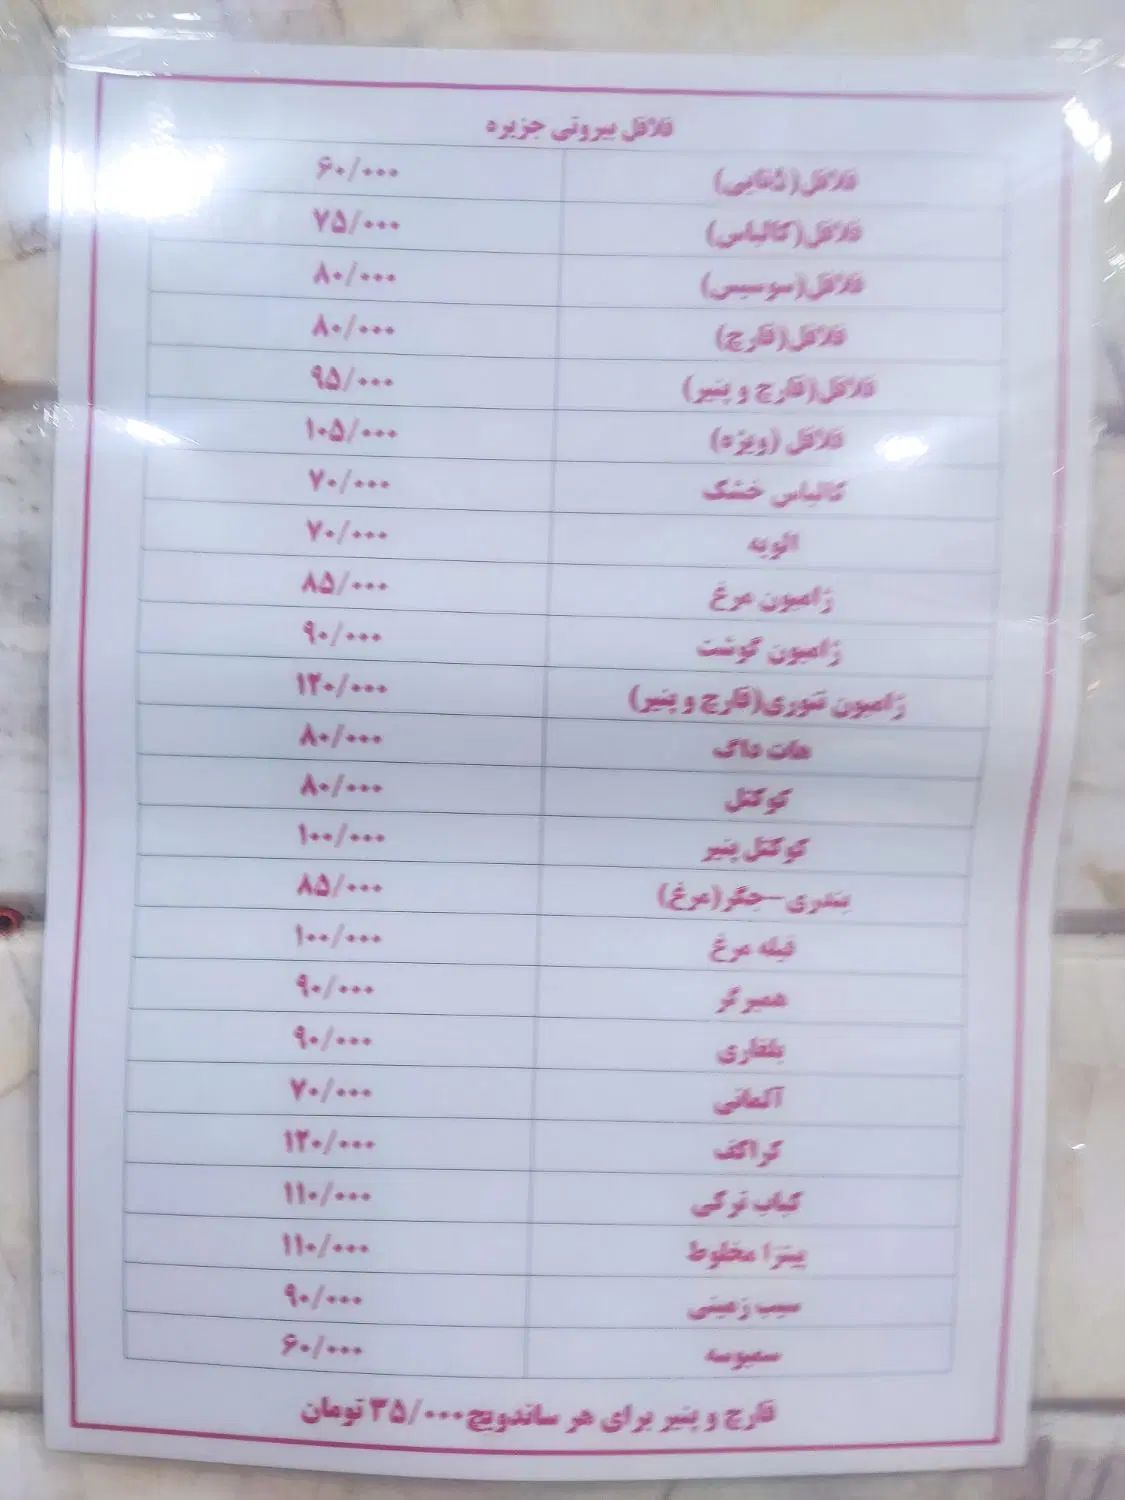 فلافل بیروتی جزیره
فلافل(ذغایی) ۶۰/۰۰۰
فلافل(کالباس) ۷۵/۰۰۰
فلافل(سوسیس) ۸۰/۰۰۰
فلافل(قارچ) ۸۰/۰۰۰
فلافل(قارچ و پنیر) ۹۵/۰۰۰
فلافل (ویژه) ۱۰۵/۰۰۰
کالباس خشک ۷۰/۰۰۰
الویه ۷۰/۰۰۰
ژامبون مرغ ۸۵/۰۰۰
ژامبون گوشت ۹۰/۰۰۰
ژامبون تنوری(قارچ و پنیر) ۱۲۰/۰۰۰
هات داگ ۸۰/۰۰۰
کوکتل ۸۰/۰۰۰
کوکتل پنیر ۱۰۰/۰۰۰
بندری-جگر(مرغ) ۸۵/۰۰۰
فیله مرغ ۱۰۰/۰۰۰
همبرگر ۹۰/۰۰۰
بلغاری ۹۰/۰۰۰
آلمانی ۷۰/۰۰۰
کراکف ۱۲۰/۰۰۰
کباب ترکی ۱۱۰/۰۰۰
پیتزا مخلوط ۱۱۰/۰۰۰
سیب زمینی ۹۰/۰۰۰
سمبوسه ۶۰/۰۰۰
قارچ و پنیر برای هر ساندویچ ۳۵/۰۰۰ تومان